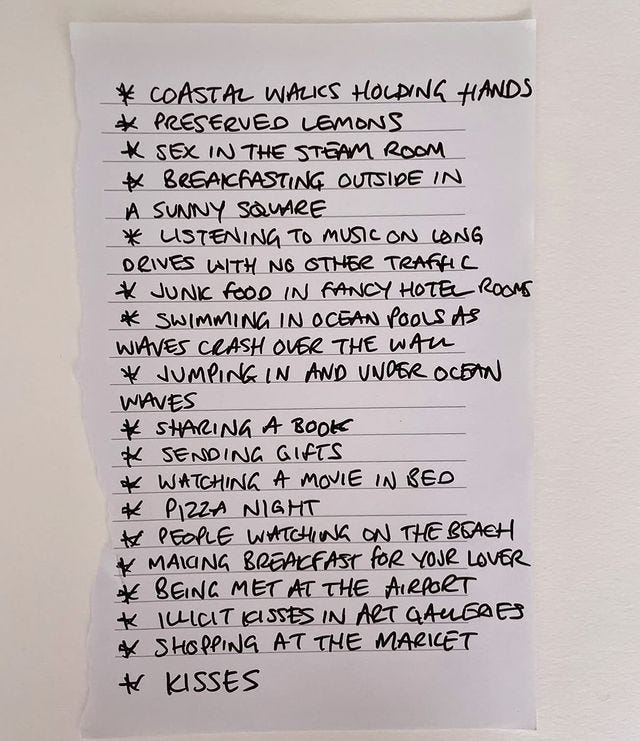 * COASTAL WALKS HOLDING HANDS
* PRESERVED LEMONS
* SEX IN THE STEAM ROOM
* BREAKFASTING OUTSIDE IN
A SUNNY SQUARE
* LISTENING TO MUSIC ON LONG
DRIVES WITH NO OTHER TRAFFIC
* JUNK FOOD IN FANCY HOTEL ROOMS
* SWIMMING IN OCEAN POOLS AS
WAVES CRASH OVER THE WALL
* JUMPING IN AND UNDER OCEAN
WAVES
* SHARING A BOOK
* SENDING GIFTS
* WATCHING A MOVIE IN BED
* PIZZA NIGHT
* PEOPLE WATCHING ON THE BEACH
* MAKING BREAKFAST FOR YOUR LOVER
* BEING MET AT THE AIRPORT
* ILLICIT KISSES IN ART GALLERIES
* SHOPPING AT THE MARKET
* KISSES